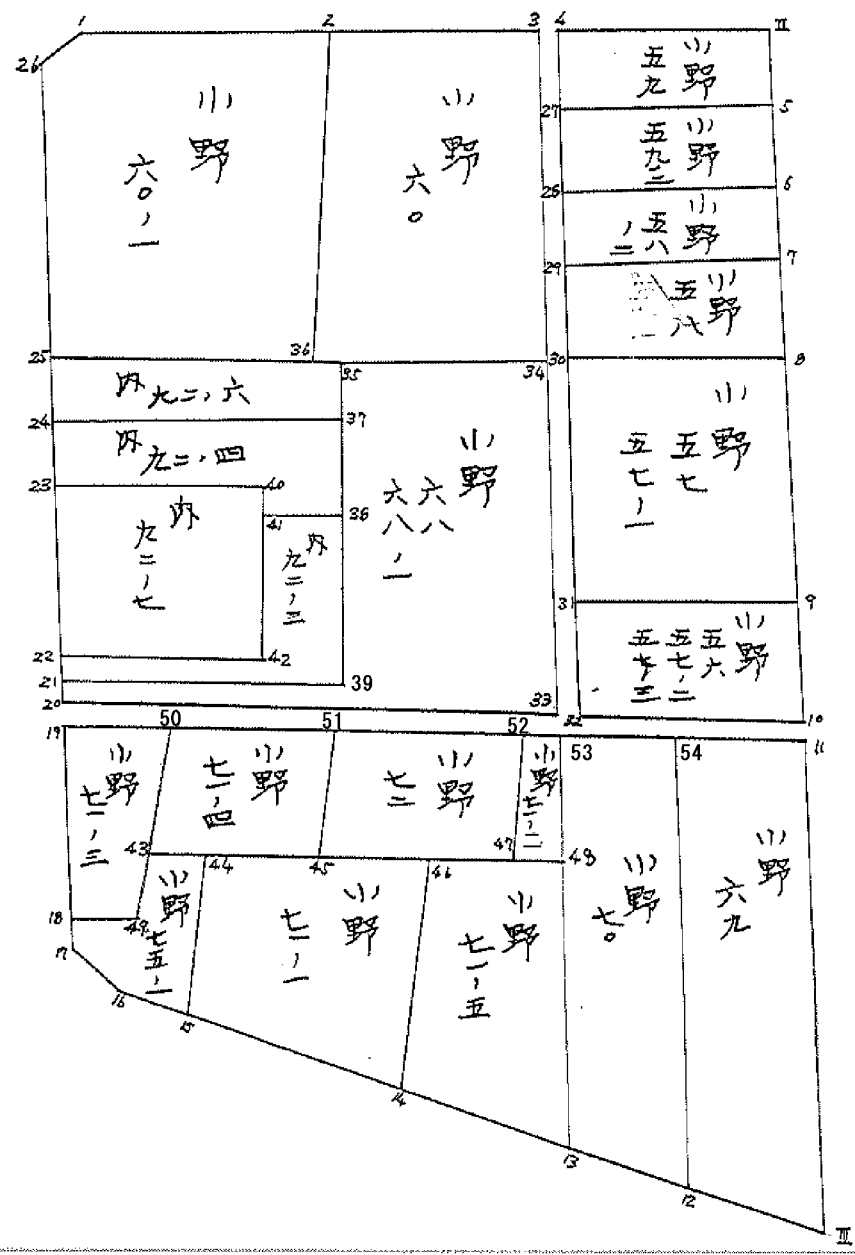 1
2
3
4
II
26
小野
六〇ノ一
小野
六〇
小野
五九
27
5
小野
五九ノ二
28
6
小野
五八
ノ二
29
7
小野
五八
30
8
25
36
35
34
内九二ノ六
24
37
内九二ノ四
23
40
41
38
内
九二ノ七
内
九二ノ三
小野
六八
六八ノ一
小野
五七
五七ノ一
31
9
小野
五六
五七ノ二
五七ノ三
22
42
21
39
20
33
32
10
19
50
51
52
53
54
11
小野
七一ノ三
小野
七一ノ四
小野
七二
小野
七一ノ二
43
44
45
46
47
48
18
49
17
小野
七五ノ一
小野
七一ノ一
小野
七一ノ五
小野
七〇
小野
六九
16
15
14
13
12
III